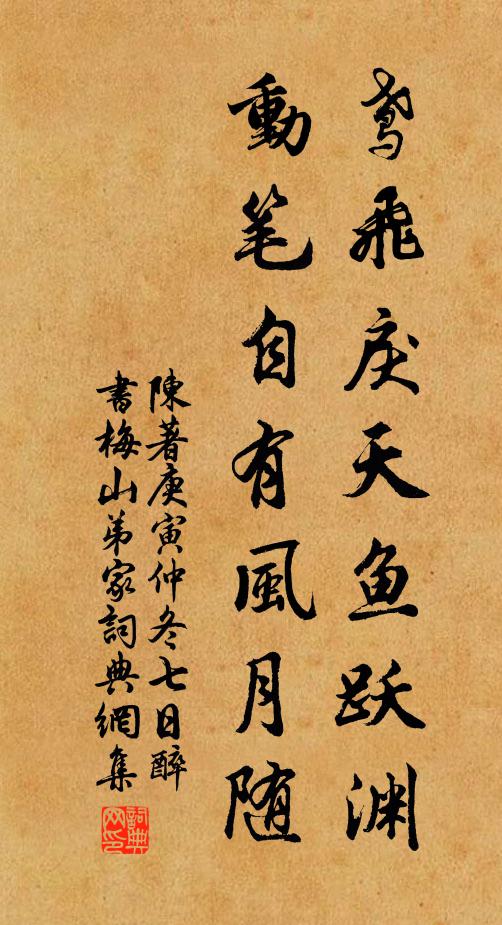 鸢飛戾天鱼跃渊
動笔自有風月随
陳著庚寅仲冬七日醉
書梅山弟家詞典網集
詞典网印